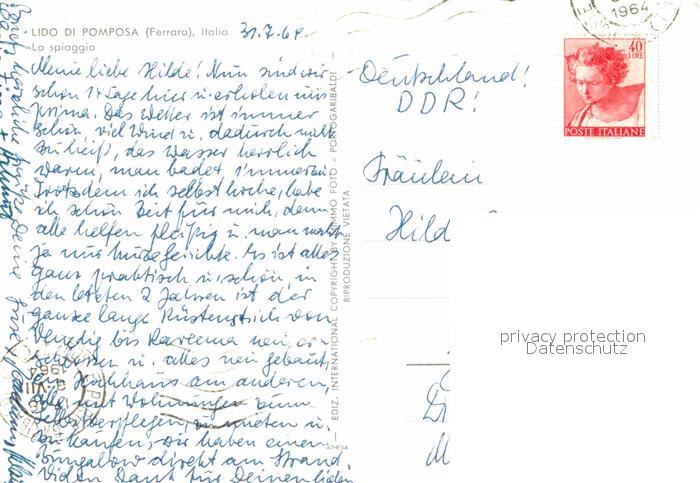 LIDO DI POMPOSA (Ferrara), Italia 31.7.64
La spiaggia
Meine liebe Hilde! Nun sind wir
schon 14 Tage hier u. erholen uns
prima. Das Wetter ist immer
schön, viel Wind u. dadurch nicht
zu heiß, das Wasser herrlich
warm, man badet immerzu.
Trotzdem ich selbst koche, habe
ich schön Zeit für mich, denn
alle helfen fleißig u. man macht
ja nur Kurzgerichte. Es ist alles
ganz praktisch u. schön in
den letzten 2 Jahren ist der
ganze lange Küstenstrich von
Venedig bis Ravenna neu er-
schlossen u. alles neu gebaut,
ein Hochhaus am anderen,
alle mit Wohnungen zum
Selbstverpflegen, zu mieten u.
zu kaufen, wir haben einen
Bungalow direkt am Strand.
Vielen Dank für Deinen lieben
herzliche Grüße Deine
EDIZ. INTERNATIONAL COPYRIGHT BY MIMMO FOTO - PORTOGARIBALDI -
RIPRODUZIONE VIETATA
ATHESIA
Deutschland!
DDR!
Fräulein
Hild
40
LIRE
POSTE ITALIANE
1964
1964
privacy protection
Datenschutz